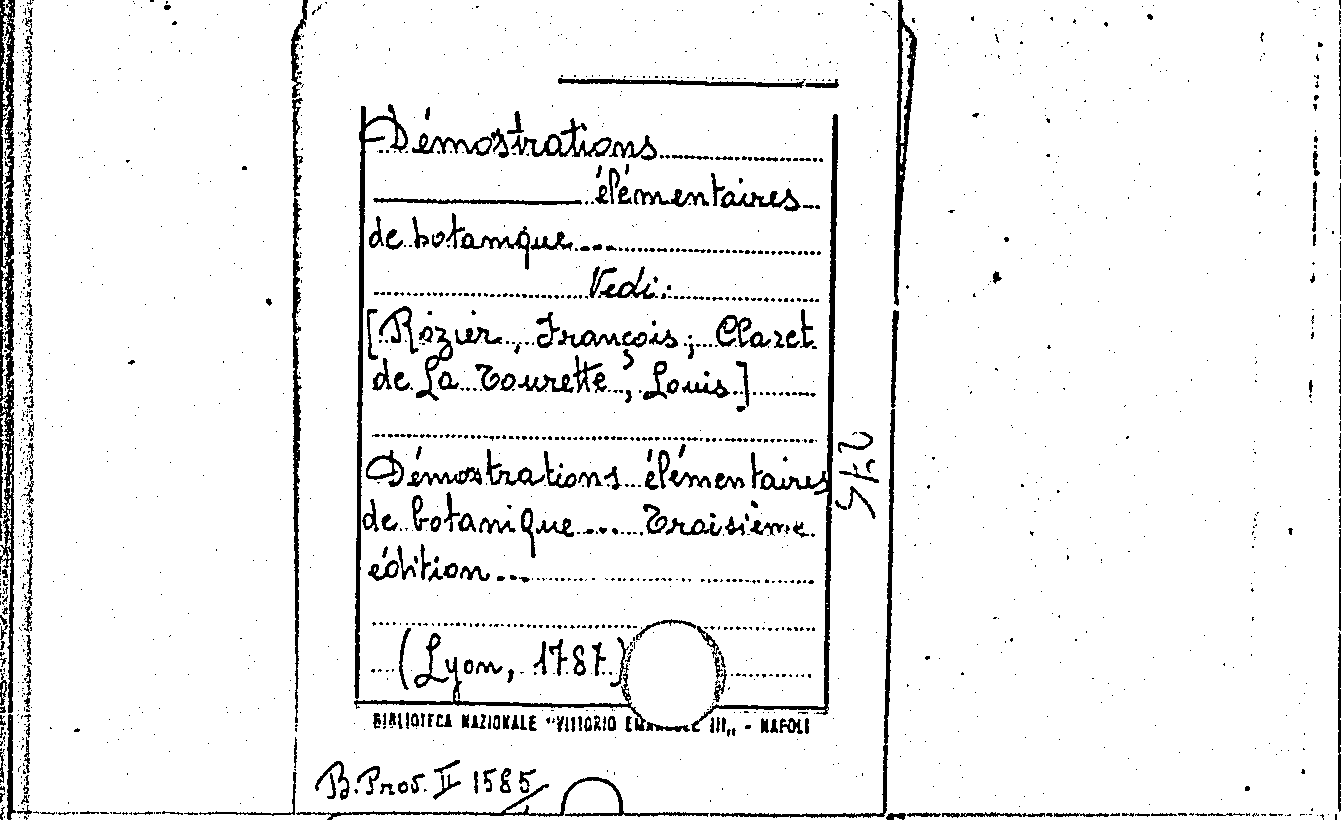 Démostrations
élémentaires
de botanique...
Vedi:
[Rozier, François; Claret
de La Tourette, Louis]
Démostrations élémentaires
de botanique... Troisième
édition...
(Lyon, 1787)
BIBLIOTECA NAZIONALE "VITTORIO EMANUELE III„ - NAPOLI
B. Prov. II 1585/